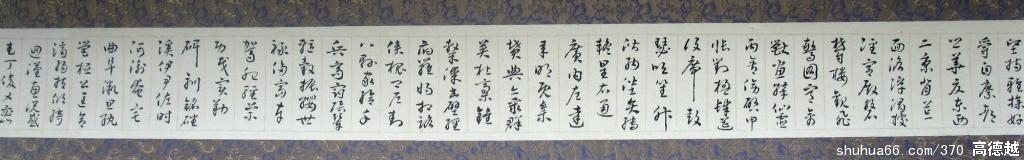 堅持雅操好
爵自縻都
邑華夏東西
二京背芒
面洛浮渭據
涇宮殿盤
鬱樓觀飛
驚圖寫禽
獸畫彩仙靈
丙舍傍啟甲
帳對楹肆筵
設席鼓
瑟吹笙升
階納陛弁
轉疑星右通
廣內左達
承明既集
墳典亦聚群
英杜稾鍾
隸漆書壁經
府羅將相路
俠槐卿戶封
八縣家給千
兵高冠陪輦
驅轂振纓世
祿侈富車
駕肥輕策
功茂實勒
碑刻銘磻
溪伊尹佐時
阿衡奄宅
曲阜微旦孰
營桓公匡合
濟弱扶傾綺
迴漢惠說感
武丁俊乂密
shuhua66.com/370 高德越